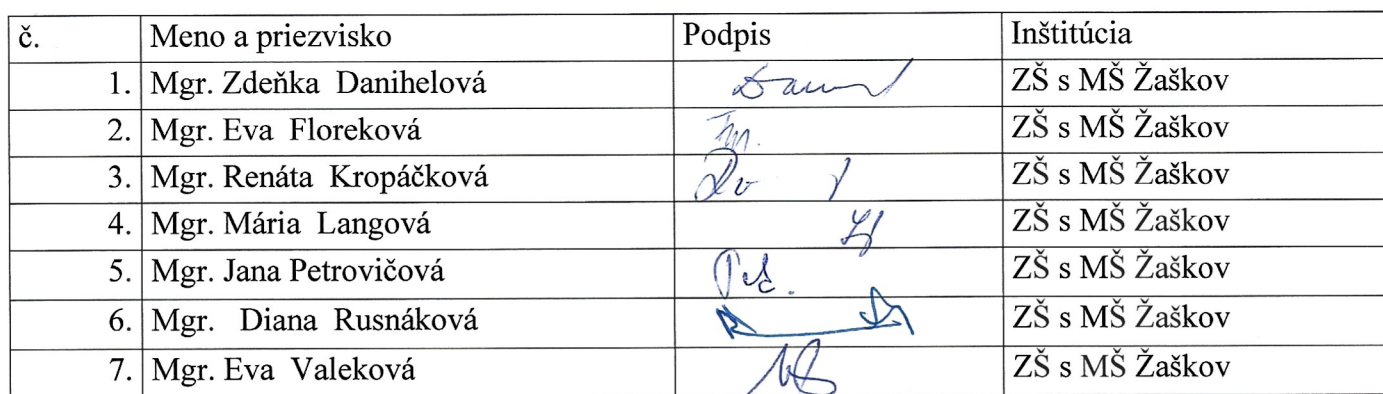 č. Meno a priezvisko Podpis Inštitúcia
1. Mgr. Zdeňka Danihelová ZŠ s MŠ Žaškov
2. Mgr. Eva Floreková ZŠ s MŠ Žaškov
3. Mgr. Renáta Kropáčková ZŠ s MŠ Žaškov
4. Mgr. Mária Langová ZŠ s MŠ Žaškov
5. Mgr. Jana Petrovičová ZŠ s MŠ Žaškov
6. Mgr. Diana Rusnáková ZŠ s MŠ Žaškov
7. Mgr. Eva Valeková ZŠ s MŠ Žaškov